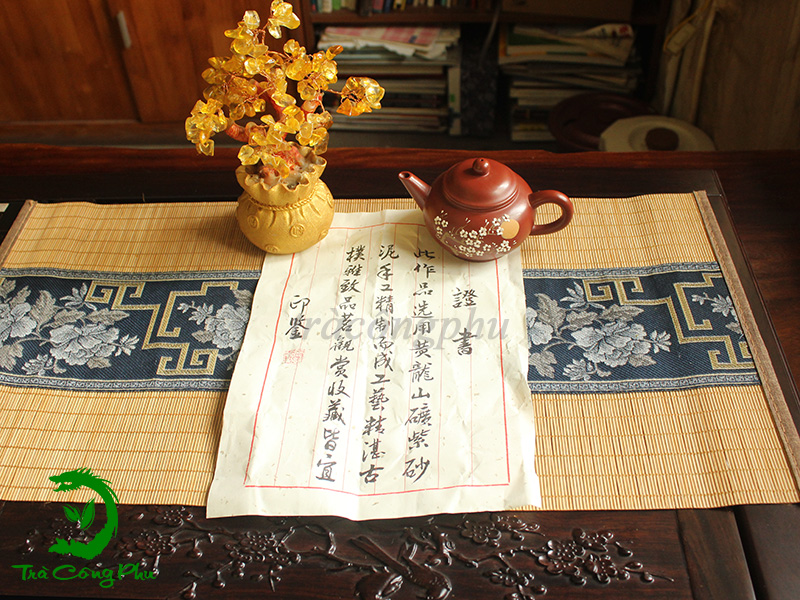 證書
此作品选用黄龍山礦紫砂
泥手工精制而成工藝精湛古
樸雅致品茗觀赏收藏皆宜
印鑒
tràcôngphu
Trà Công Phu